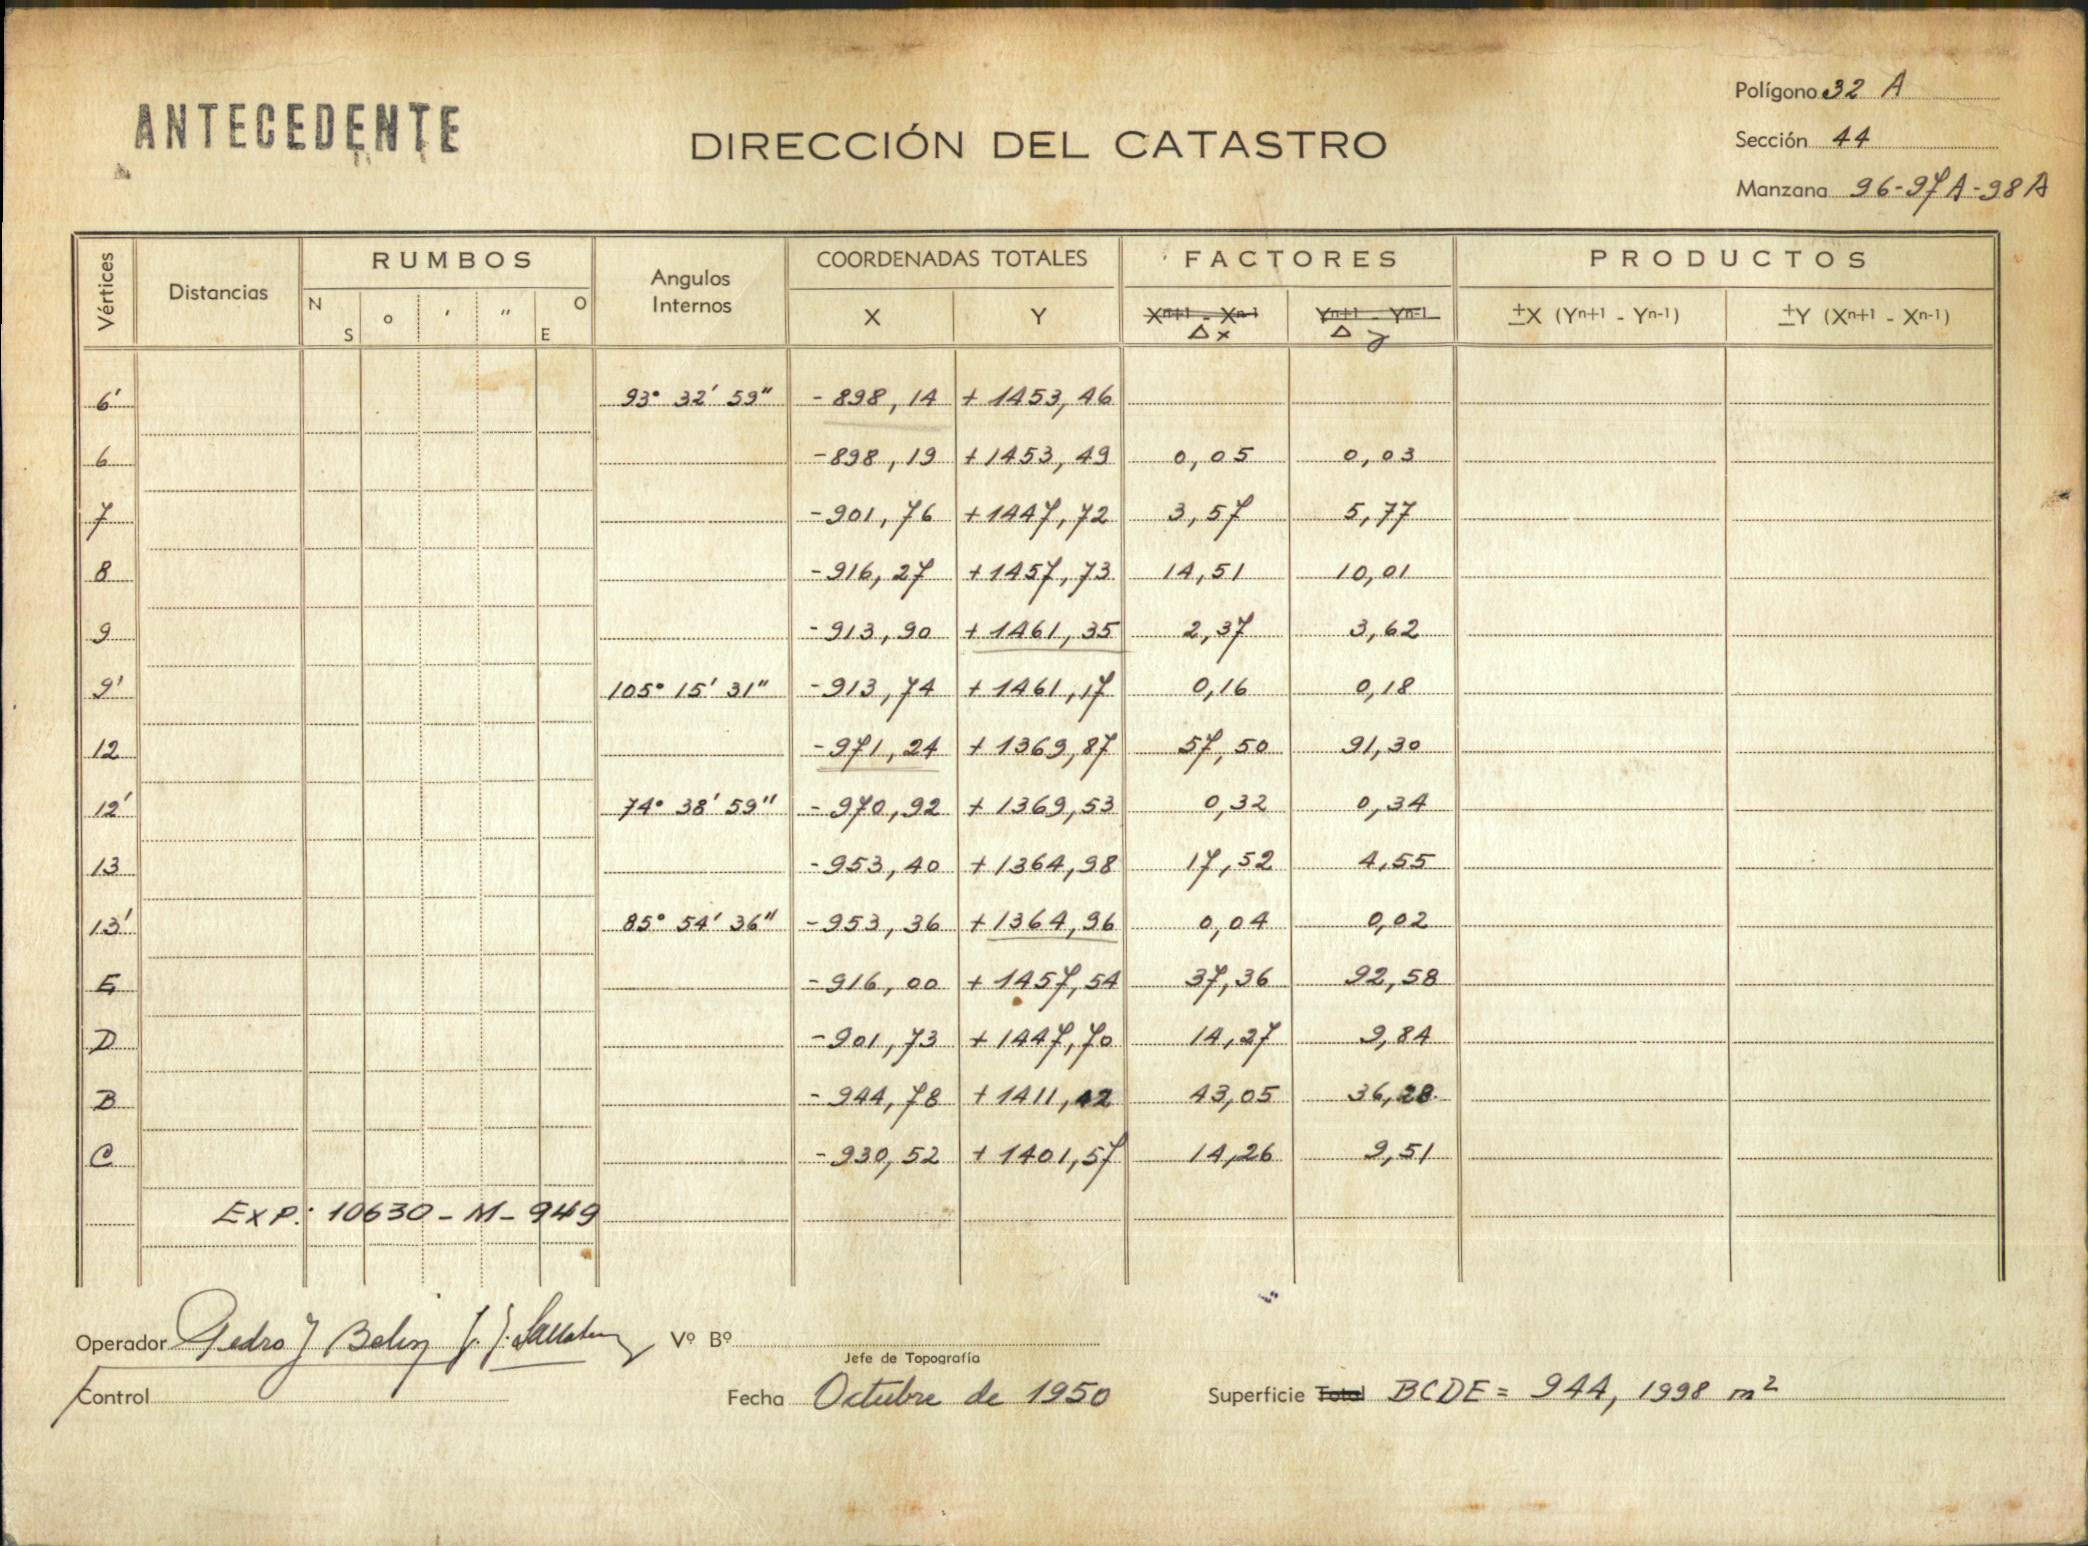 ANTECEDENTE
DIRECCIÓN DEL CATASTRO
Polígono 32 A
Sección 44
Manzana 96-97A-98A
Vértices Distancias RUMBOS Angulos Internos COORDENADAS TOTALES FACTORES PRODUCTOS
N S o ' " O E X Y Xn+1 - Xn-1 Yn+1 - Yn-1 ±X (Yn+1 - Yn-1) ±Y (Xn+1 - Xn-1)
Δx Δy
6' 93° 32' 59" -898,14 +1453,46
6 -898,19 +1453,49 0,05 0,03
7 -901,76 +1447,72 3,57 5,77
8 -916,27 +1457,73 14,51 10,01
9 -913,90 +1461,35 2,37 3,62
9' 105° 15' 31" -913,74 +1461,17 0,16 0,18
12 -971,24 +1369,87 57,50 91,30
12' 74° 38' 59" -970,92 +1369,53 0,32 0,34
13 -953,40 +1364,98 17,52 4,55
13' 85° 54' 36" -953,36 +1364,96 0,04 0,02
E -916,00 +1457,54 37,36 92,58
D -901,73 +1447,70 14,27 9,84
B -944,78 +1411,42 43,05 36,28
C -930,52 +1401,57 14,26 9,51
EXP.: 10630-M-949
Operador Pedro J Vº Bº
Jefe de Topografía
Control Fecha Octubre de 1950 Superficie Total BCDE = 944,1998 m²